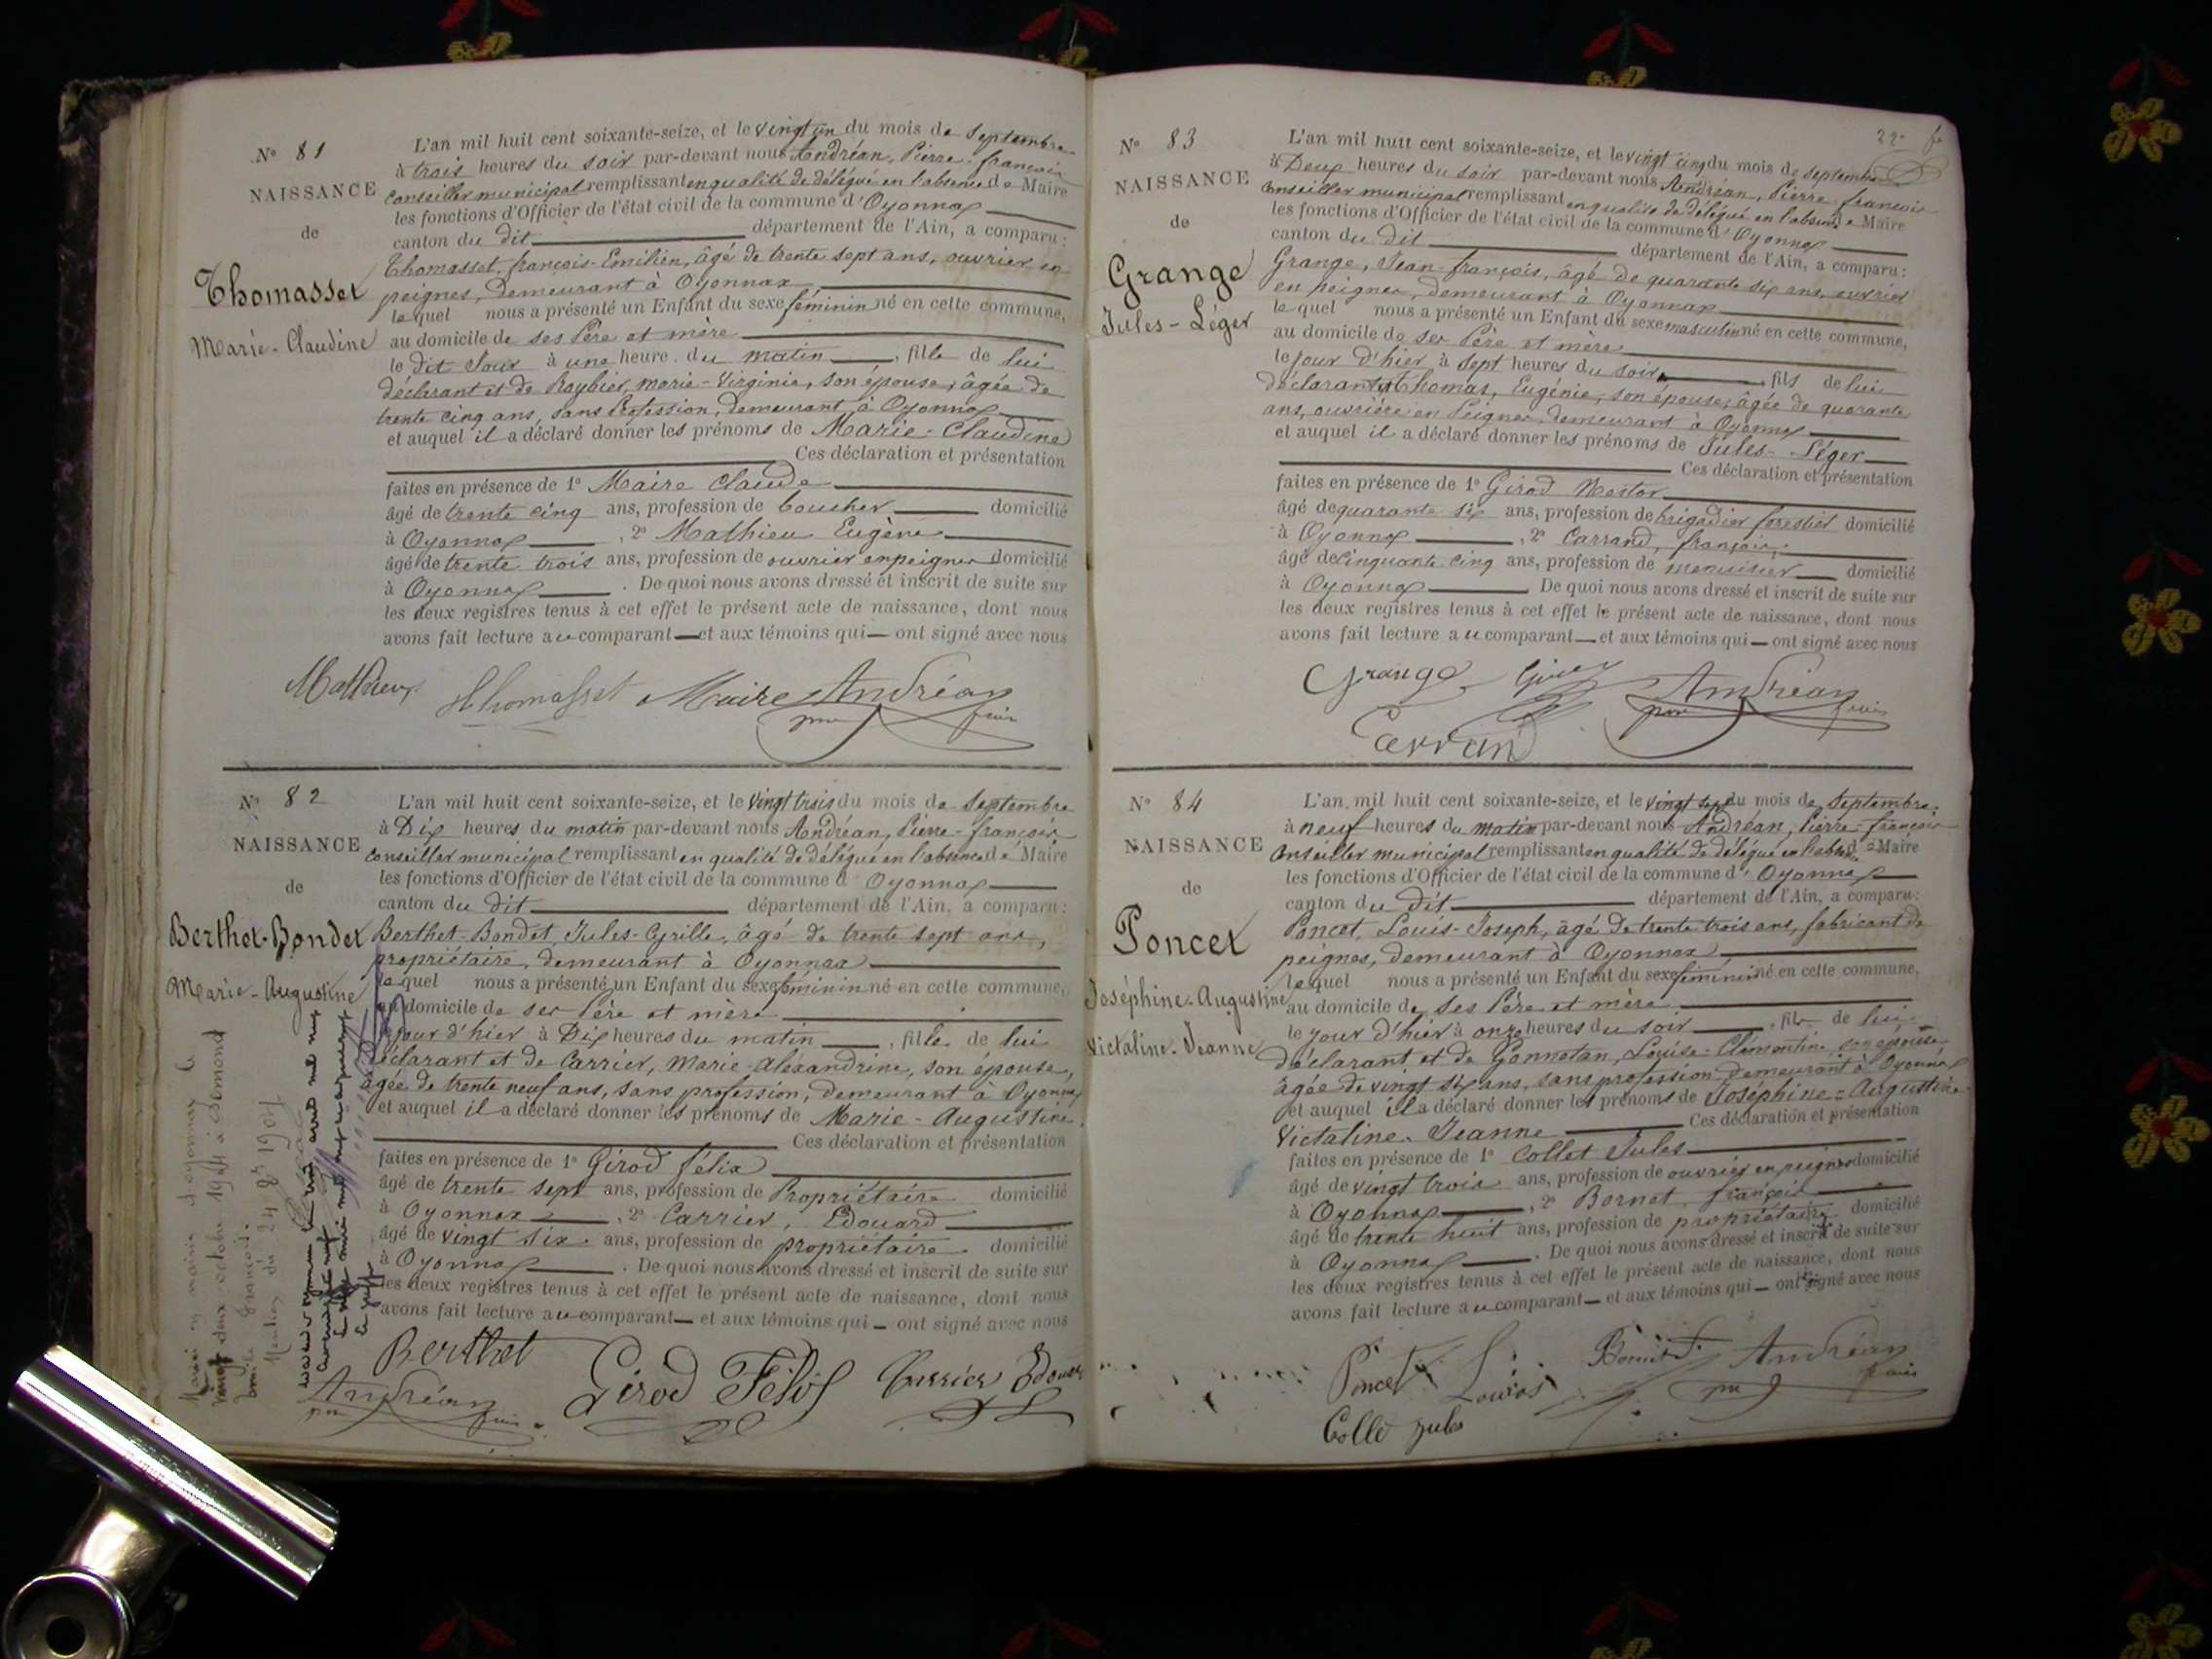 N° 81
NAISSANCE
de
Thomasset
Marie-Claudine
L'an mil huit cent soixante-seize, et le vingt un du mois de Septembre
à trois heures du soir par-devant nous Andréan, Pierre-françois
Conseiller municipal remplissant en qualité de délégué en l'absence de Maire
les fonctions d'Officier de l'état civil de la commune d'Oyonnax
canton du dit département de l'Ain, a comparu:
Thomasset, françois-Emilien, âgé de trente sept ans, ouvrier en
peignes, demeurant à Oyonnax
lequel nous a présenté un Enfant du sexe féminin né en cette commune,
au domicile de ses Père et mère
le dit Jour à une heure du matin, fille de lui
déclarant et de marie-Virginie, son épouse, âgée de
trente cinq ans, sans Profession, demeurant à Oyonnax
et auquel il a déclaré donner les prénoms de Marie-Claudine
Ces déclaration et présentation
faites en présence de 1° Maire Claude
âgé de trente cinq ans, profession de boucher domicilié
à Oyonnax, 2° Mathieu Eugène
âgé de trente trois ans, profession de ouvrier en peignes domicilié
à Oyonnax. De quoi nous avons dressé et inscrit de suite sur
les deux registres tenus à cet effet le présent acte de naissance, dont nous
avons fait lecture au comparant et aux témoins qui ont signé avec nous
Mathieu Thomasset Maire Andréan
N° 82
NAISSANCE
de
Berthet-Bondet
Marie-Augustine
L'an mil huit cent soixante-seize, et le vingt trois du mois de Septembre
à Dix heures du matin par-devant nous Andréan, Pierre-françois
Conseiller municipal remplissant en qualité de délégué en l'absence de Maire
les fonctions d'Officier de l'état civil de la commune d'Oyonnax
canton du dit département de l'Ain, a comparu:
Berthet-Bondet, Jules-Cyrille, âgé de trente sept ans,
propriétaire, demeurant à Oyonnax
lequel nous a présenté un Enfant du sexe féminin né en cette commune,
au domicile de ses Père et mère
le jour d'hier à Dix heures du matin, fille de lui
déclarant et de Carrier, Marie-Aléxandrine, son épouse,
âgée de trente neuf ans, sans profession, demeurant à Oyonnax
et auquel il a déclaré donner les prénoms de Marie-Augustine
Ces déclaration et présentation
faites en présence de 1° Girod félix
âgé de trente sept ans, profession de Propriétaire domicilié
à Oyonnax, 2° Carrier, Edouard
âgé de vingt six ans, profession de propriétaire domicilié
à Oyonnax. De quoi nous avons dressé et inscrit de suite sur
les deux registres tenus à cet effet le présent acte de naissance, dont nous
avons fait lecture au comparant et aux témoins qui ont signé avec nous
Berthet
Andréan Girod Félix Carrier Edouard
22e
N° 83
NAISSANCE
de
Grange
Jules-Léger
L'an mil huit cent soixante-seize, et le vingt cinq du mois de septembre
à Deux heures du soir par-devant nous Andréan, Pierre-françois
Conseiller municipal remplissant en qualité de délégué en l'absence de Maire
les fonctions d'Officier de l'état civil de la commune d'Oyonnax
canton du dit département de l'Ain, a comparu:
Grange, Jean-françois, âgé de quarante six ans, ouvrier
en peignes, demeurant à Oyonnax
lequel nous a présenté un Enfant du sexe masculin né en cette commune,
au domicile de ses Père et mère
le jour d'hier à sept heures du soir, fils de lui
déclarant et Thomas, Eugénie, son épouse, âgée de quarante
ans, ouvrière en Peignes, demeurant à Oyonnax
et auquel il a déclaré donner les prénoms de Jules-Léger
Ces déclaration et présentation
faites en présence de 1° Girod Nestor
âgé de quarante six ans, profession de brigadier forestier domicilié
à Oyonnax, 2° Carrand, françois,
âgé de cinquante cinq ans, profession de menuisier domicilié
à Oyonnax De quoi nous avons dressé et inscrit de suite sur
les deux registres tenus à cet effet le présent acte de naissance, dont nous
avons fait lecture au comparant et aux témoins qui ont signé avec nous
Grange Andréan
Carrand
N° 84
NAISSANCE
de
Poncet
Joséphine-Augustine
Victaline-Jeanne
L'an mil huit cent soixante-seize, et le vingt sept du mois de Septembre
à neuf heures du matin par-devant nous Andréan, Pierre-françois
Conseiller municipal remplissant en qualité de délégué en l'absence de Maire
les fonctions d'Officier de l'état civil de la commune d'Oyonnax
canton du dit département de l'Ain, a comparu:
Poncet, Louis-Joseph, âgé de trente trois ans, fabricant de
peignes, demeurant à Oyonnax
lequel nous a présenté un Enfant du sexe féminin né en cette commune,
au domicile de ses Père et mère
le jour d'hier à onze heures du soir, fille de lui
déclarant et de Gonnetan, Louise-Clémentine, son épouse
âgée de vingt six ans, sans profession, demeurant à Oyonnax
et auquel il a déclaré donner les prénoms de Joséphine-Augustine
Victaline-Jeanne Ces déclaration et présentation
faites en présence de 1° Collet Jules
âgé de vingt trois ans, profession de ouvrier en peignes domicilié
à Oyonnax, 2° Bornet, françois
âgé de trente huit ans, profession de propriétaire domicilié
à Oyonnax. De quoi nous avons dressé et inscrit de suite sur
les deux registres tenus à cet effet le présent acte de naissance, dont nous
avons fait lecture au comparant et aux témoins qui ont signé avec nous
Poncet Louis Andréan
Collet jules